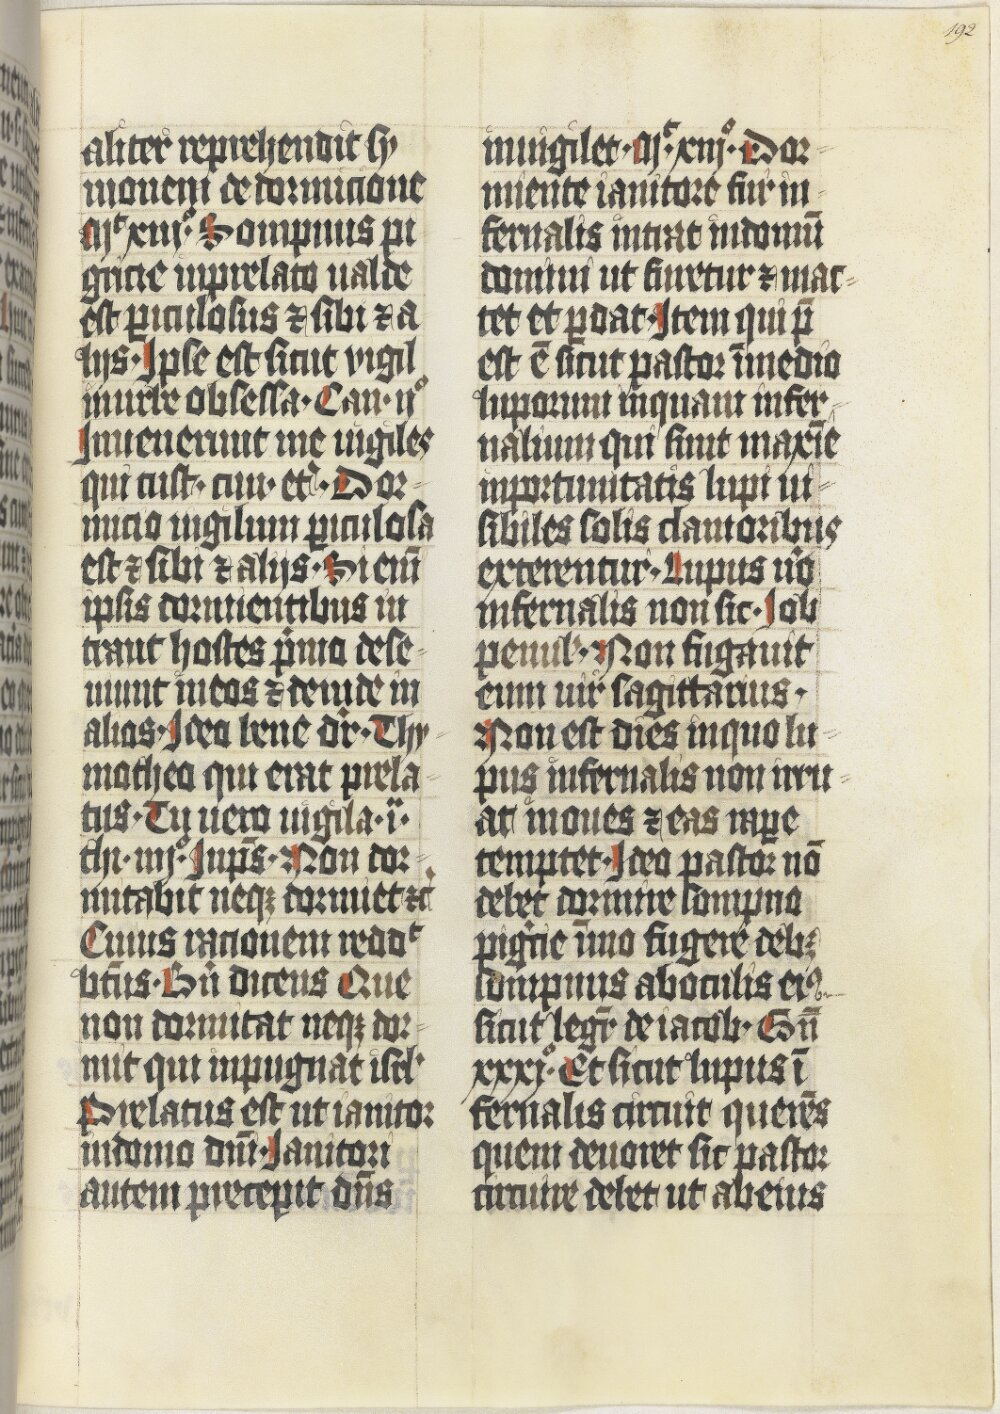 192
aliter reprehendit sy
monem de dormicione
mͬ xiiijͦ · Sompnus pi
gricie inprelato ualde
est piculosus ⁊ sibi ⁊ a
lijs · Ipse est sicut vigil
inurbe obsessa · Can · ijͦ
Inuenerunt me uigiles
qui cust · ciui · etc̉ · Dor-
micio uigilum piculosa
est ⁊ sibi ⁊ alijs · Si enī
ipsis dormientibus in
trant hostes pͥmo dese-
uiunt ineos ⁊ deinde in
alios · Ideo bene dr̄ · Thy-
motheo qui erat prela-
tus · Tu uero uigila · ij ·
thi · iiijͦ · Inps̄ · Non dor-
mitabit neqꝫ dormiet ⁊c̉
Cuius racionem reddͭ
bt̄us · Gū dicens Que
non dormitat neqꝫ dor-
mit qui inpugnat isrl̉
Prelatus est ut ianitor
indomo dnī · Ianitori
autem precepit dn̄s
inuigilet · mͬ xiijͦ · Dor-
miente ianitore fur in-
fernalis intrat indomū
domini ut furetur ⁊ mac-
tet et ꝑdat · Item qui p̄
est ē sicut pastor īmedio
luporum inquam infer-
nalium qui sunt maxīe
inportunitatis lupi ui-
sibiles solis clamoribus
exterentur · Lupus uͦo
infernalis non sic · Iob
penul̉ · Non fugauit
eum uir sagittarius ·
Non est dies inquo lu-
pus infernalis non irru-
at inoues ⁊ eas rape
temptet · Ideo pastor nō
debet dormire sompno
pigͥcie īmo fugere debꝫ
sompnus aboculis eiꝰ
sicut legr̄ de iacob · Gn̄
xxxjͦ · Et sicut lupus ī
fernalis circuit querēs
quem deuoret sic pastor
circuire debet ut abeius